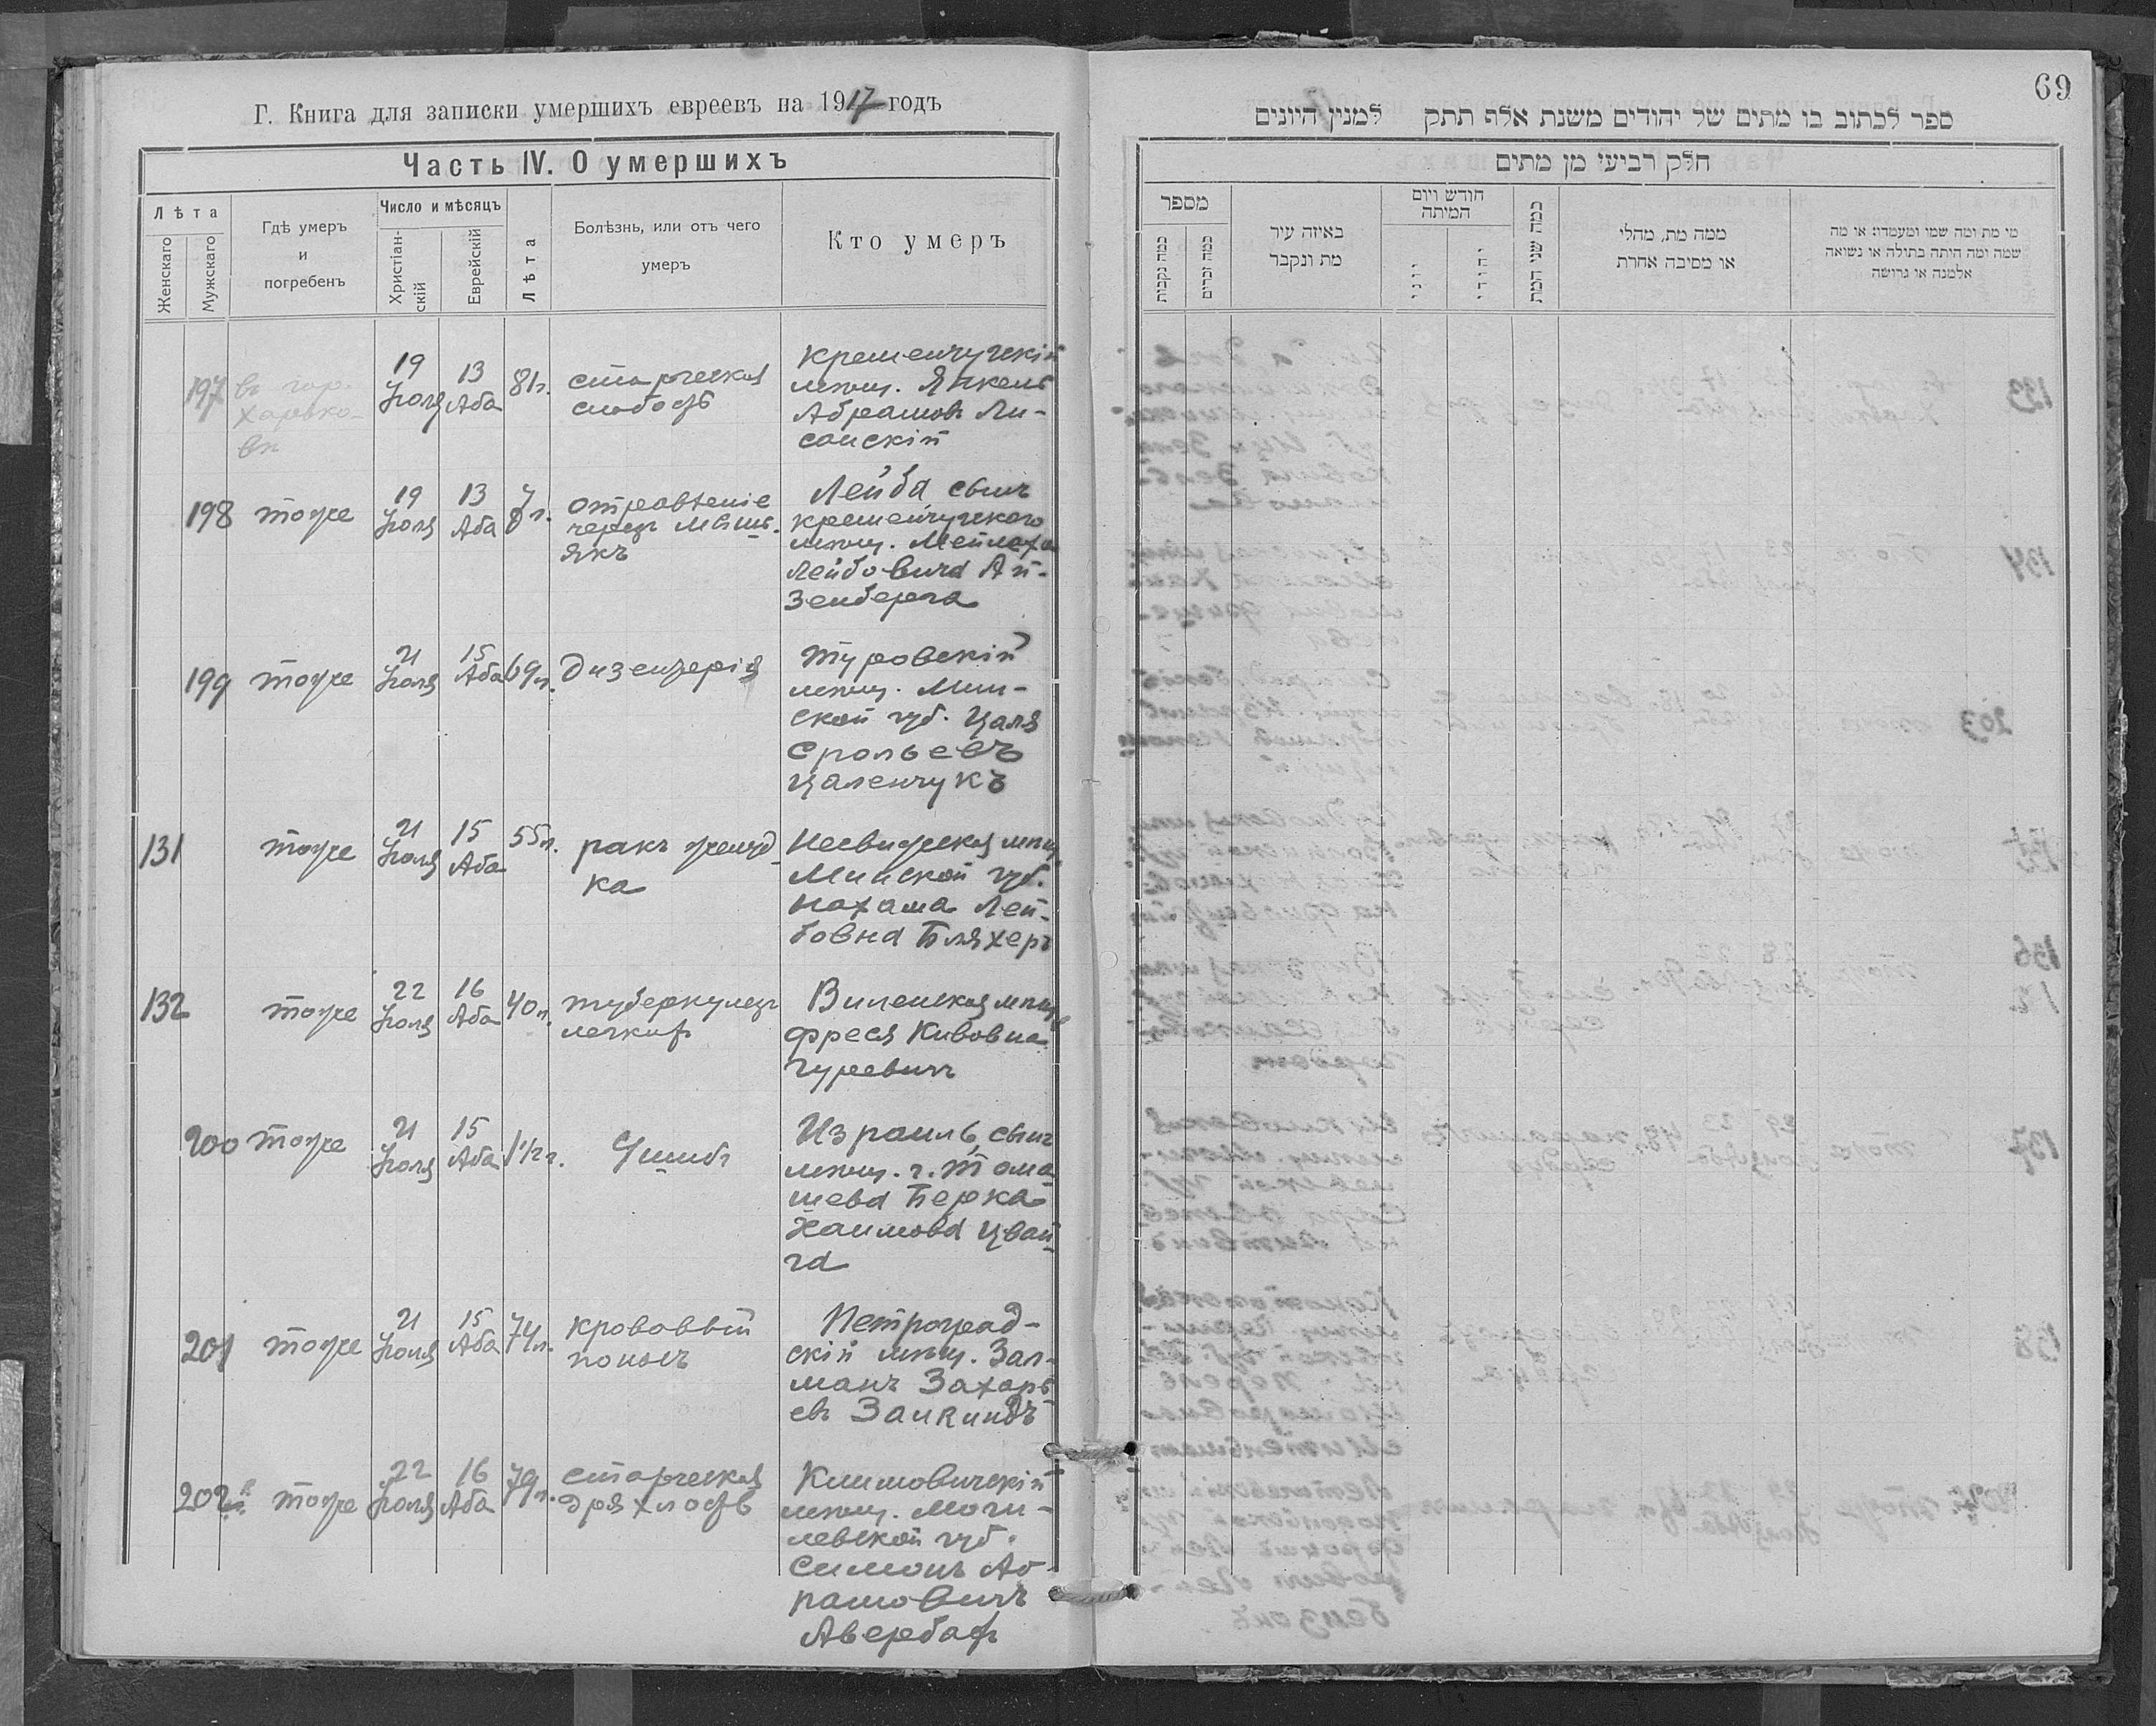 Г. Книга для записки умершихъ евреевъ на 1917 годъ
Часть IV. О умершихъ
Лѣта
Женскаго
Мужскаго
Гдѣ умеръ
и
погребенъ
Число и мѣсяцъ
Христіан-
скій
Еврейскій
Лѣта
Болѣзнь, или отъ чего
умеръ
Кто умеръ
197
въ гор.
Харько-
вѣ
19
Іюля
13
Аба
81 л.
старческая
слабость
Кременчугскій
мѣщ. Янкель
Абрамовъ Ли-
санскій
198
тоже
19
Іюля
13
Аба
7 л.
отравленіе
черезъ мышь-
якъ
Лейба сынъ
кременчугскаго
мѣщ. Мейлаха
Лейбовича Ай-
зенберга
199
тоже
21
Іюля
15
Аба
69 л.
Дизентерія
Туровскій
мѣщ. Мин-
ской губ. Цаля
Срольевъ
Цаленчукъ
131
тоже
21
Іюля
15
Аба
55 л.
ракъ желуд-
ка
Несвижская мѣщ.
Минской губ.
Нахама Лей-
бовна Бляхеръ
132
тоже
22
Іюля
16
Аба
40 л.
туберкулезъ
легкихъ
Виленская мѣщ.
Фрейя Кивовна
Гуревичъ
200
тоже
21
Іюля
15
Аба
1 1/2 г.
Ушибъ
Израиль, сынъ
мѣщ. г. Тома-
шева Берка
Хаимова Цвай-
га
201
тоже
21
Іюля
15
Аба
74 л.
крововый
поносъ
Петроград-
скій мѣщ. Зал-
манъ Захарь-
евъ Заикиндъ
202
тоже
22
Іюля
16
Аба
79 л.
старческая
дряхлость
Климовичскій
мѣщ. Моги-
левской губ.
Симонъ Аб-
рамовичъ
Авербахъ
69
ספר לכתוב בו מתים של יהודים משנת אלף תתק למנין היונים
חלק רביעי מן מתים
מספר
כמה נקבות
כמה זכרים
באיזה עיר
מת ונקבר
חודש ויום
המיתה
יוני
יהודי
כמה שני המת
ממה מת, מחלי
או מסיבה אחרת
מי מת ומה שמו ומעמדו: או מה
שמה ומה היתה בתולה או נשואה
אלמנה או גרושה